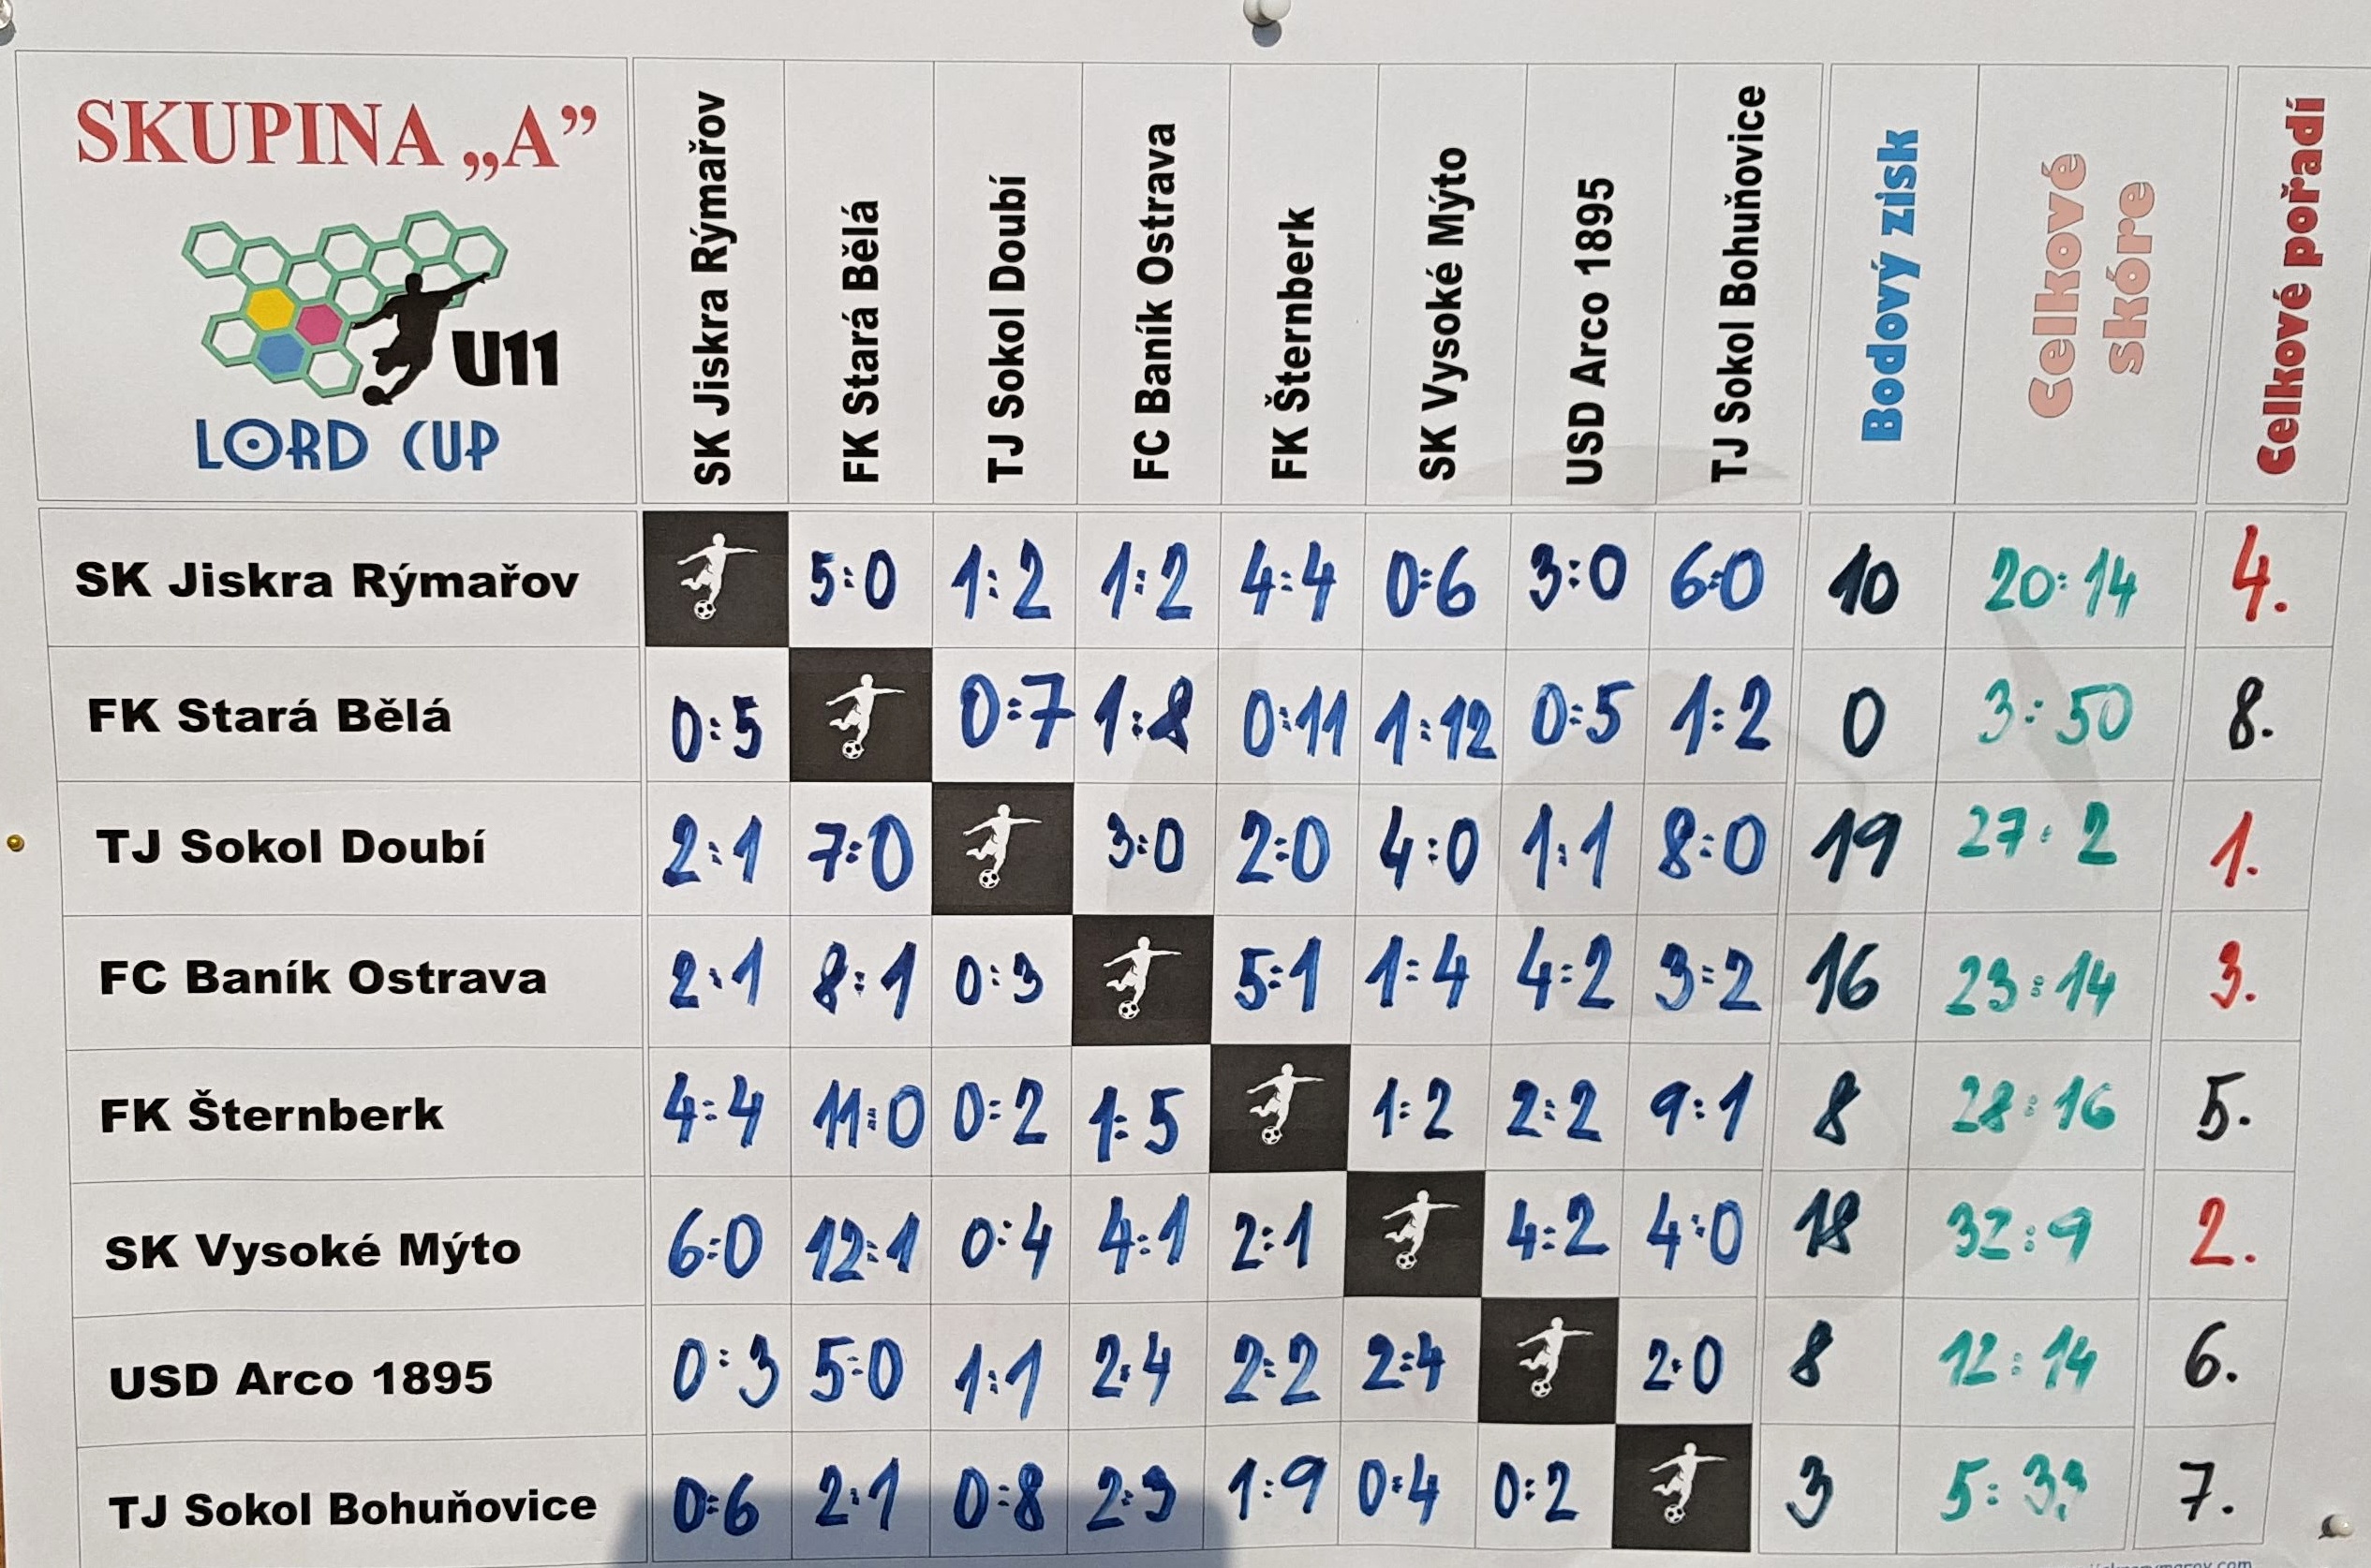 SKUPINA „A”
U11
LORD CUP
SK Jiskra Rýmařov
FK Stará Bělá
TJ Sokol Doubí
FC Baník Ostrava
FK Šternberk
SK Vysoké Mýto
USD Arco 1895
TJ Sokol Bohuňovice
Bodový zisk
Celkové
skóre
Celkové pořadí
SK Jiskra Rýmařov 5:0 1:2 1:2 4:4 0:6 3:0 6:0 10 20:14 4.
FK Stará Bělá 0:5 0:7 1:8 0:11 1:12 0:5 1:2 0 3:50 8.
TJ Sokol Doubí 2:1 7:0 3:0 2:0 4:0 1:1 8:0 19 27:2 1.
FC Baník Ostrava 2:1 8:1 0:3 5:1 1:4 4:2 3:2 16 23:14 3.
FK Šternberk 4:4 11:0 0:2 1:5 1:2 2:2 9:1 8 28:16 5.
SK Vysoké Mýto 6:0 12:1 0:4 4:1 2:1 4:2 4:0 18 32:9 2.
USD Arco 1895 0:3 5:0 1:1 2:4 2:2 2:4 2:0 8 12:14 6.
TJ Sokol Bohuňovice 0:6 2:1 0:8 2:3 1:9 0:4 0:2 3 5:33 7.